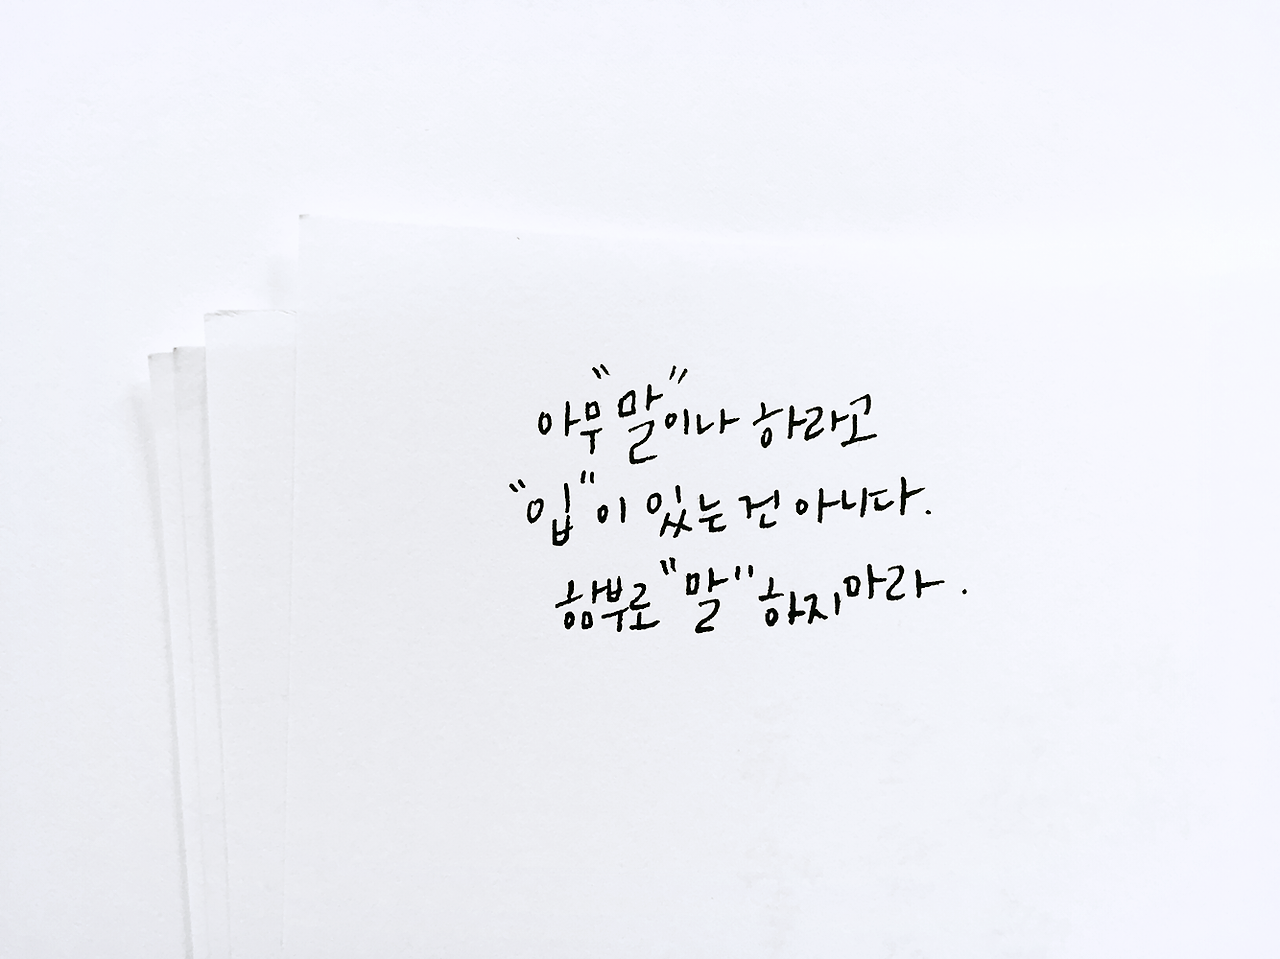 아무"말"이나 하라고
"입"이 있는 건 아니다.
함부로 "말" 하지마라.